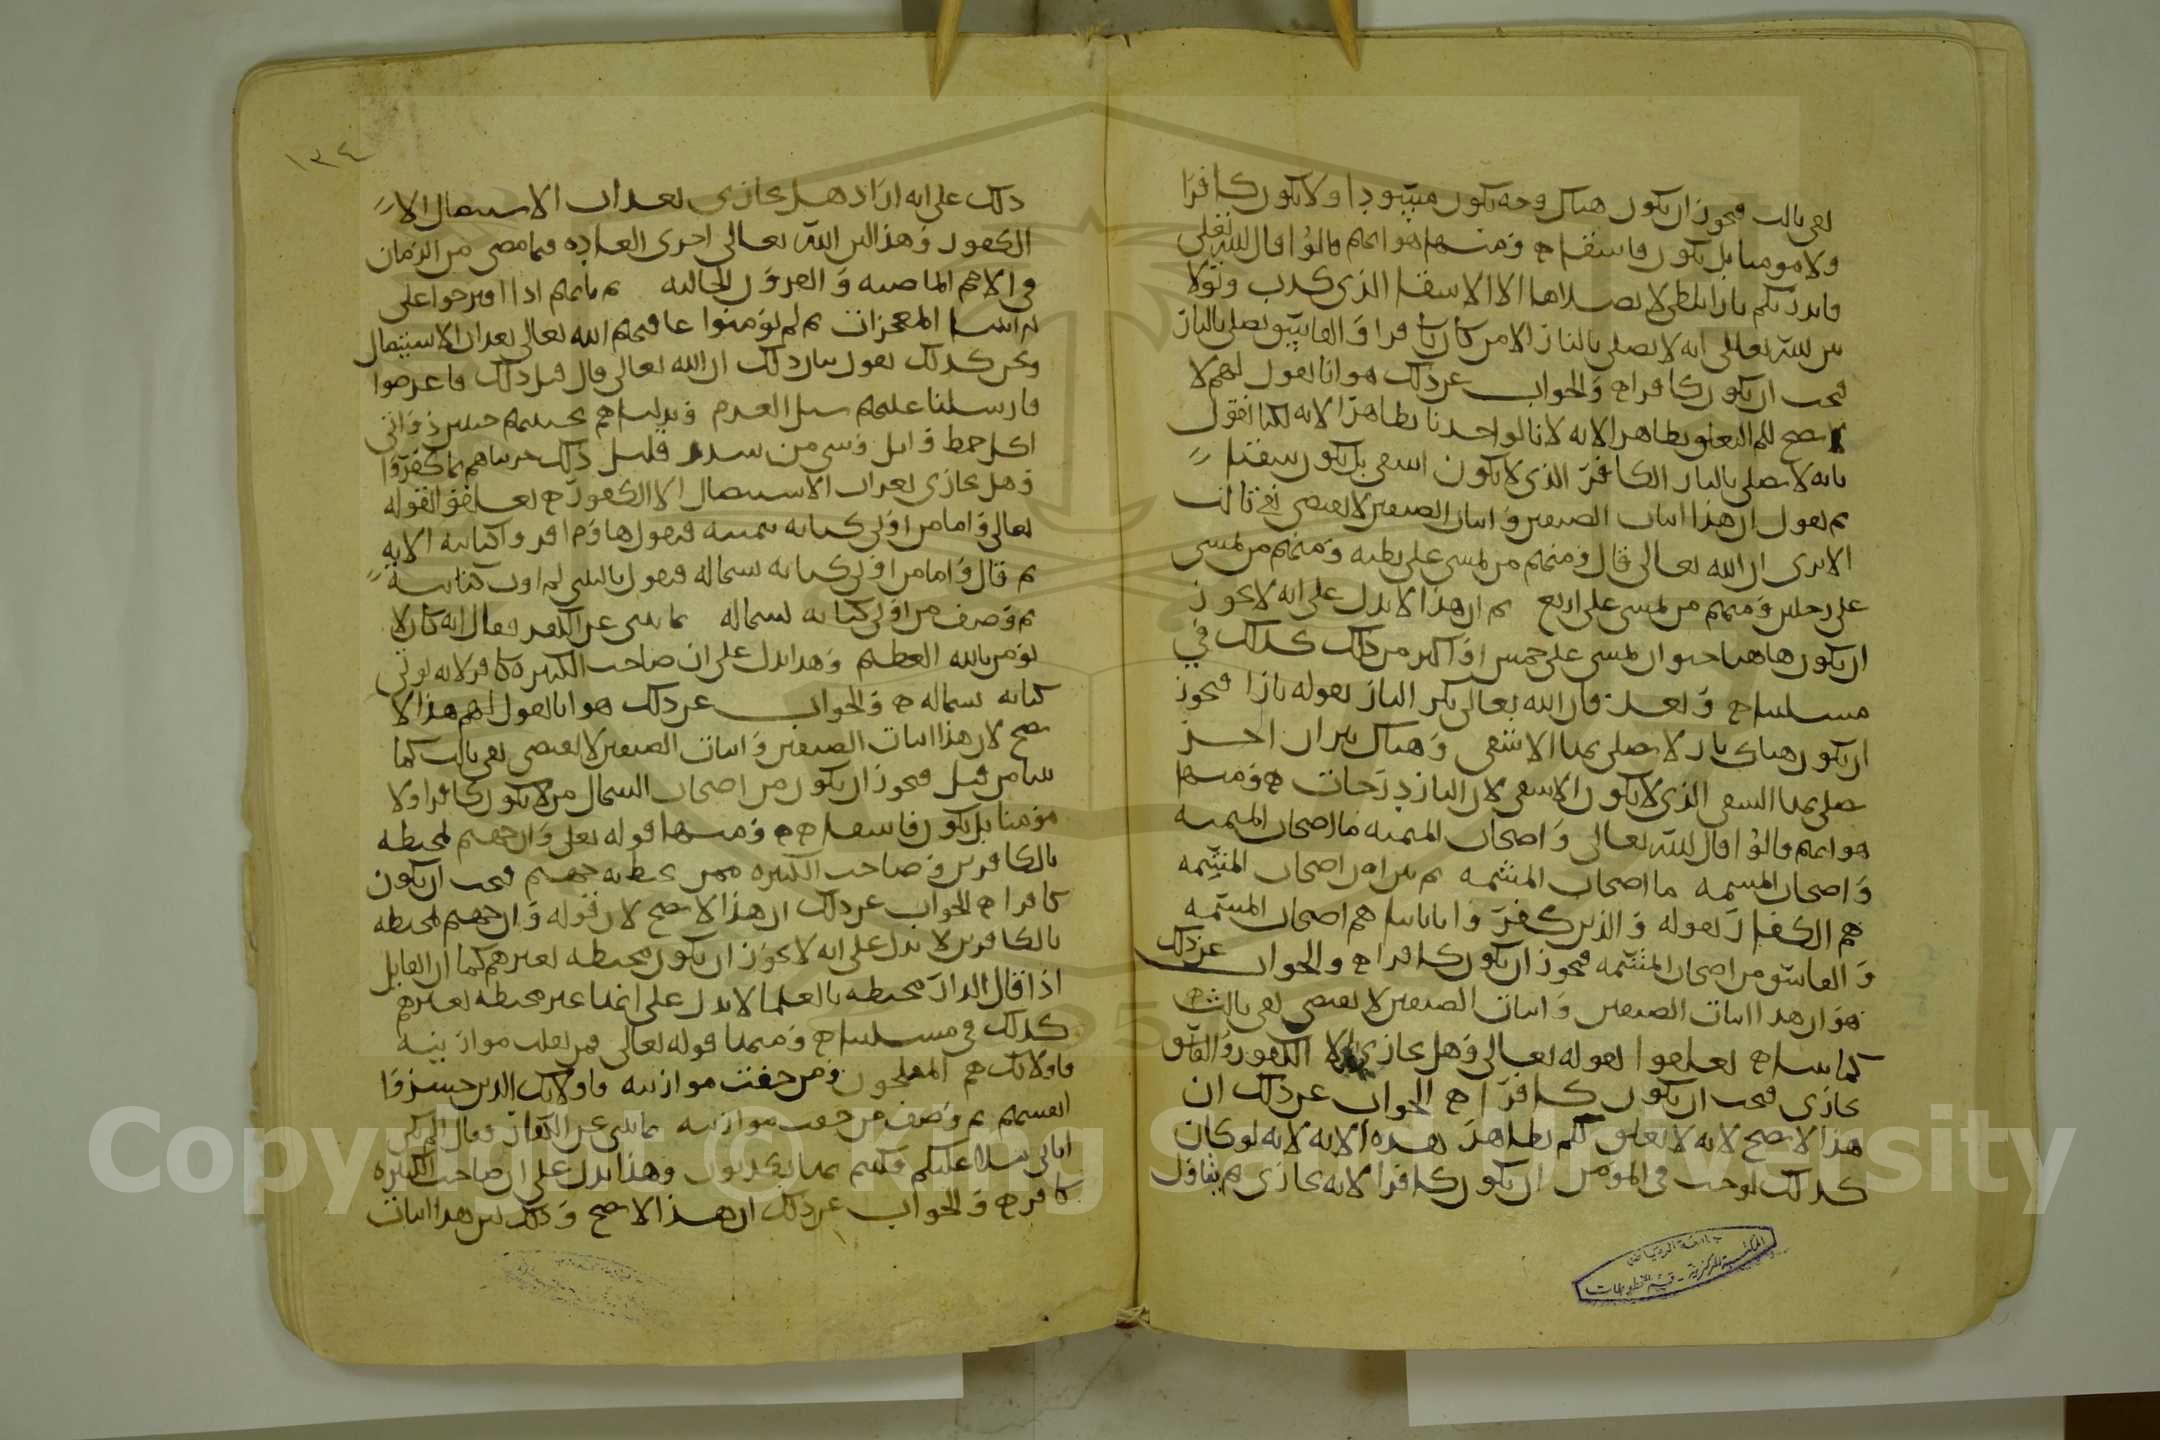 نفي ثالث فيجوز ان يكون هناك وجه يكون مسودا ولا يكون كافرا
ولا مومنا بل يكون فاسقا ه ومنها هو انهم قالوا قال الله تعلى
فانذرتكم نارا تلظى لا يصلاها الا الاشقا الذي كذب وتولا
بين الله تعالى انه لا يصلى بالنار الا من كان كافرا والفاسق يصلى بالنار
فيجب ان يكون كافرا ه والجواب عن ذلك هو انا نقول لهم لا
يصح لكم التعلق بظاهر الايه لانا لو اخذنا بظاهر الايه لكنا نقول
بانه لا يصلى بالنار الكافر الذي لا يكون اشقى بل يكون شقيا
ثم نقول ان هذا اثبات الصنفين واثبات الصنفين لا يقتضي نفي ثالث
الا ترى ان الله تعالى قال ومنهم من يمشي على بطنه ومنهم من يمشي
على رجلين ومنهم من يمشي على اربع ثم ان هذا لا يدل على انه لا يجوز
ان يكون هاهنا حيوان يمشي على خمس او اكثر من ذلك كذلك في
مسلتنا ه وبعد فان الله تعالى نكر النار بقوله نارا فيجوز
ان يكون هناك نار لا يصلى بها الا الاشقى وهناك نيران اخر
يصلى بها الشقي الذي لا يكون الاشقى لان النار درجات ه ومنها
هو انهم قالوا قال الله تعالى واصحاب الميمنه ما اصحاب الميمنه
واصحاب المشمه ما اصحاب المشمه ثم بين ان اصحاب المشمه
هم الكفار بقوله والذين كفروا باياتنا هم اصحاب المشمه
والفاسق من اصحاب المشمه فيجوز ان يكون كافرا ه والجواب عن ذلك
هو ان هذا اثبات الصنفين واثبات الصنفين لا يقتضي نفي ثالث ه
كما بينا ه تعلقوا بقوله تعالى وهل يجازى الا الكفور والفاسق
يجازى فيجب ان يكون كافرا ه الجواب عن ذلك ان
هذا لا يصح لانه لا تعلق لكم بظاهر هذه الايه لانه لو كان
كذلك لوجب في المومن ان يكون كافرا لانه يجازى ثم يقال
١٣٤
ذلك على انه اراد هل يجازى بعذاب الاستيصال الا
الكفور وهذا لان الله تعالى اجرى العاده فيما مضى من الزمان
في الامم الماضيه والقرون الخاليه ثم بانهم اذا اقترحوا على
المعجزات ثم لم يؤمنوا عاقبهم الله تعالى بعذاب الاستيصال
ونحن كذلك نقول بيان ذلك ان الله تعالى قال قبل ذلك فاعرضوا
فارسلنا عليهم سيل العرم وبدلناهم بجنتيهم جنتين ذواتي
اكل خمط واثل وشي من سدر قليل ذلك جزيناهم بما كفروا
وهل يجازى بعذاب الاستيصال الا الكفور ه تعلقوا بقوله
تعالى واما من اوتي كتابه بيمينه فيقول هاؤم اقروا كتابيه الايه
ثم قال واما من اوتي كتابه بشماله فيقول يا ليتني لم اوت كتابيه
ثم وصف من اوتي كتابه بشماله بما ينبي عن الكفر فقال انه كان لا
يؤمن بالله العظيم وهذا يدل على ان صاحب الكبيره كافر لانه يؤتى
كتابه بشماله ه والجواب عن ذلك هو انا نقول لهم هذا لا
يصح لان هذا اثبات الصنفين واثبات الصنفين لا يقتضي نفي ثالث كما
بينا من قبل فيجوز ان يكون من اصحاب الشمال من لا يكون كافرا ولا
مؤمنا بل يكون فاسقا ه ه ومنها قوله تعلى وان جهنم لمحيطه
بالكافرين وصاحب الكبيره ممن يحيط به جهنم فيجب ان يكون
كافرا ه الجواب عن ذلك ان هذا لا يصح لان قوله وان جهنم لمحيطه
بالكافرين لا يدل على انه لا يجوز ان يكون محيطه بغيرهم كما ان القايل
اذا قال الدار محيطه بالعلما لا يدل على انها غير محيطه بغيرهم
كذلك في مسلتنا ه ومنها قوله تعالى فمن ثقلت موازينه
فاولائك هم المفلحون ومن خفت موازينه فاولائك الذين خسروا
انفسهم ثم وصف من خفت موازينه بما ينبي عن الكفار فقال الم تكن
اياتي تتلا عليكم فكنتم بها تكذبون وهذا يدل على ان صاحب الكبيره
كافر ه والجواب عن ذلك ان هذا لا يصح وذلك لان هذا اثبات